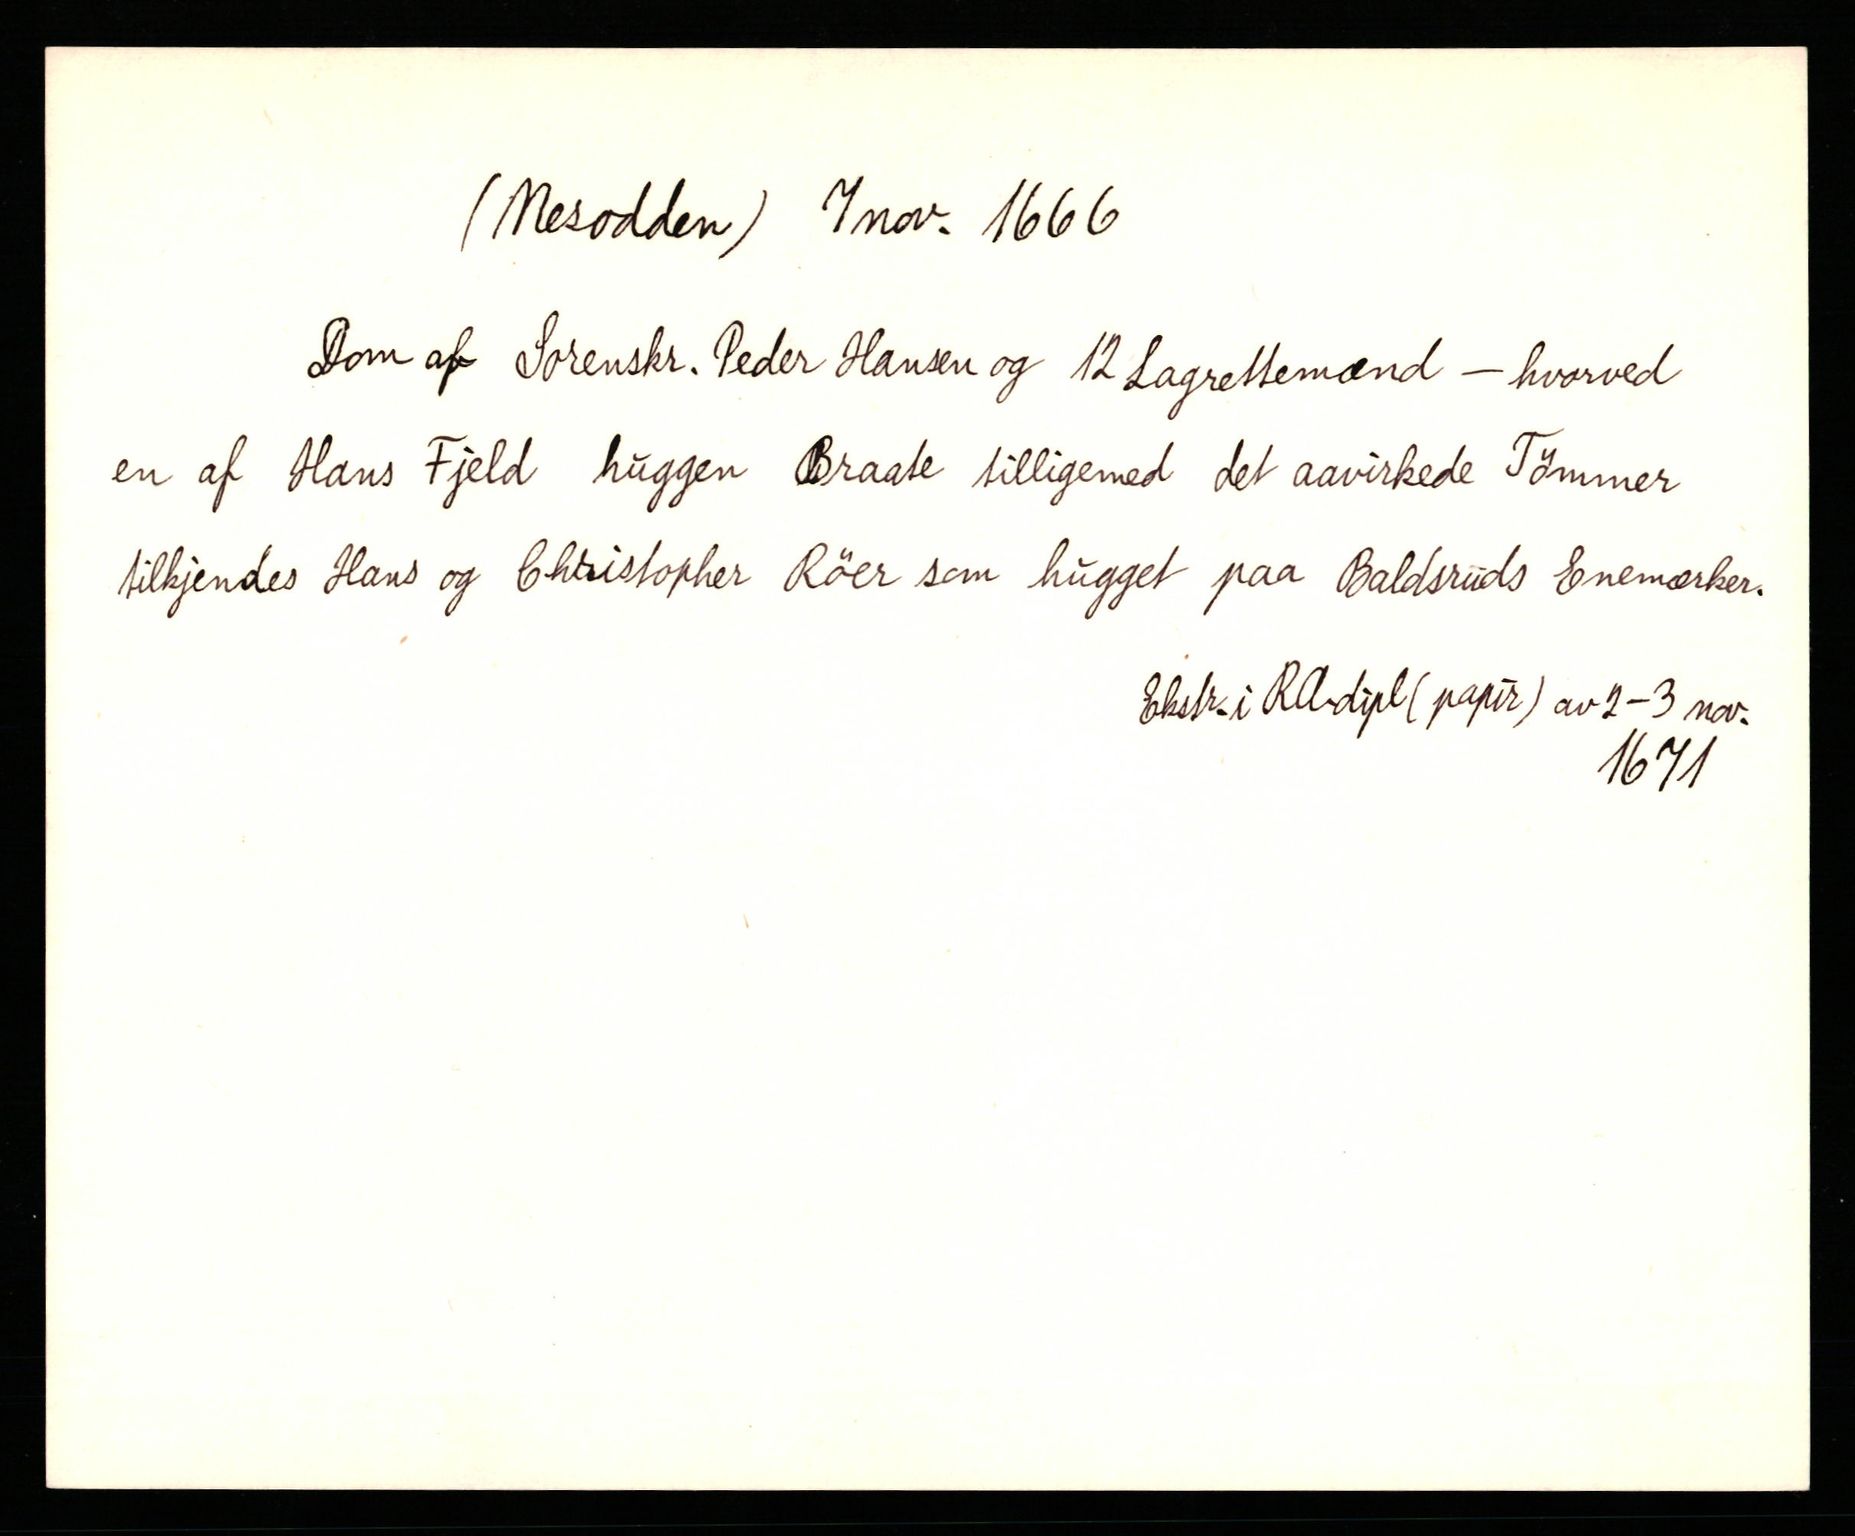 (Nesodden) 7 nov. 1666
Dom af Sorenskr. Peder Hansen og 12 Lagrettemænd – hvorved
en af Hans Fjeld huggen Braate tilligemed det aavirkede Tömmer
tilkjendes Hans og Christopher Röer som hugget paa Baldsruds Enemærker.
Ekstr. i RA-dipl (papir) av 2–3 nov.
1671